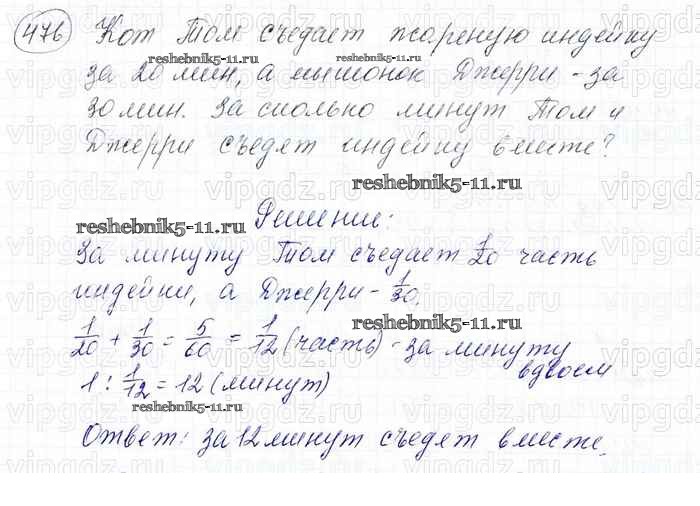 476 Кот Том съедает жареную индейку
reshebnik5-11.ru reshebnik5-11.ru
за 20 мин, а мышонок Джерри - за
30 мин. За сколько минут Том и
Джерри съедят индейку вместе?
reshebnik5-11.ru
reshebnik5-11.ru Решение:
За минуту Том съедает 1/20 часть
индейки, а Джерри - 1/30.
reshebnik5-11.ru
1/20 + 1/30 = 5/60 = 1/12 (часть) - за минуту
вдвоем
1 : 1/12 = 12 (минут)
reshebnik5-11.ru
Ответ: за 12 минут съедят вместе.
vipgdz.ru